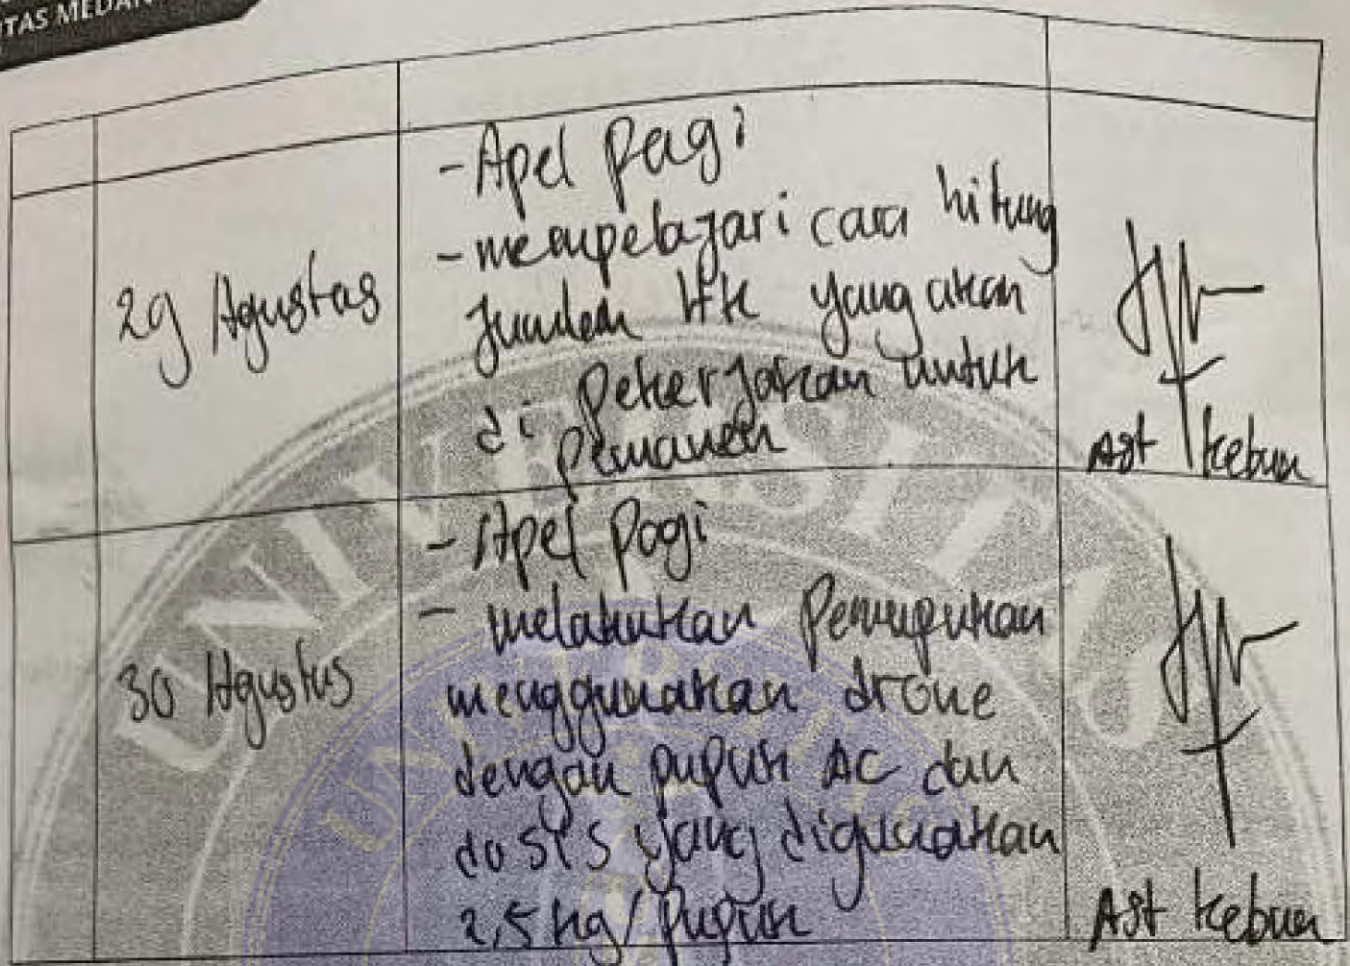 ITAS MEDAN
29 Agustus
- Apel pagi
- mempelajari cara hitung
Jumlah HK yang akan
di pekerjakan untuk
pemanen
Ast kebun
30 Agustus
- Apel pagi
- melakukan Pemupukan
menggunakan drone
dengan pupuk AC dan
dosis yang digunakan
2,5 kg/pupuk
Ast kebun
UNIVERSITAS